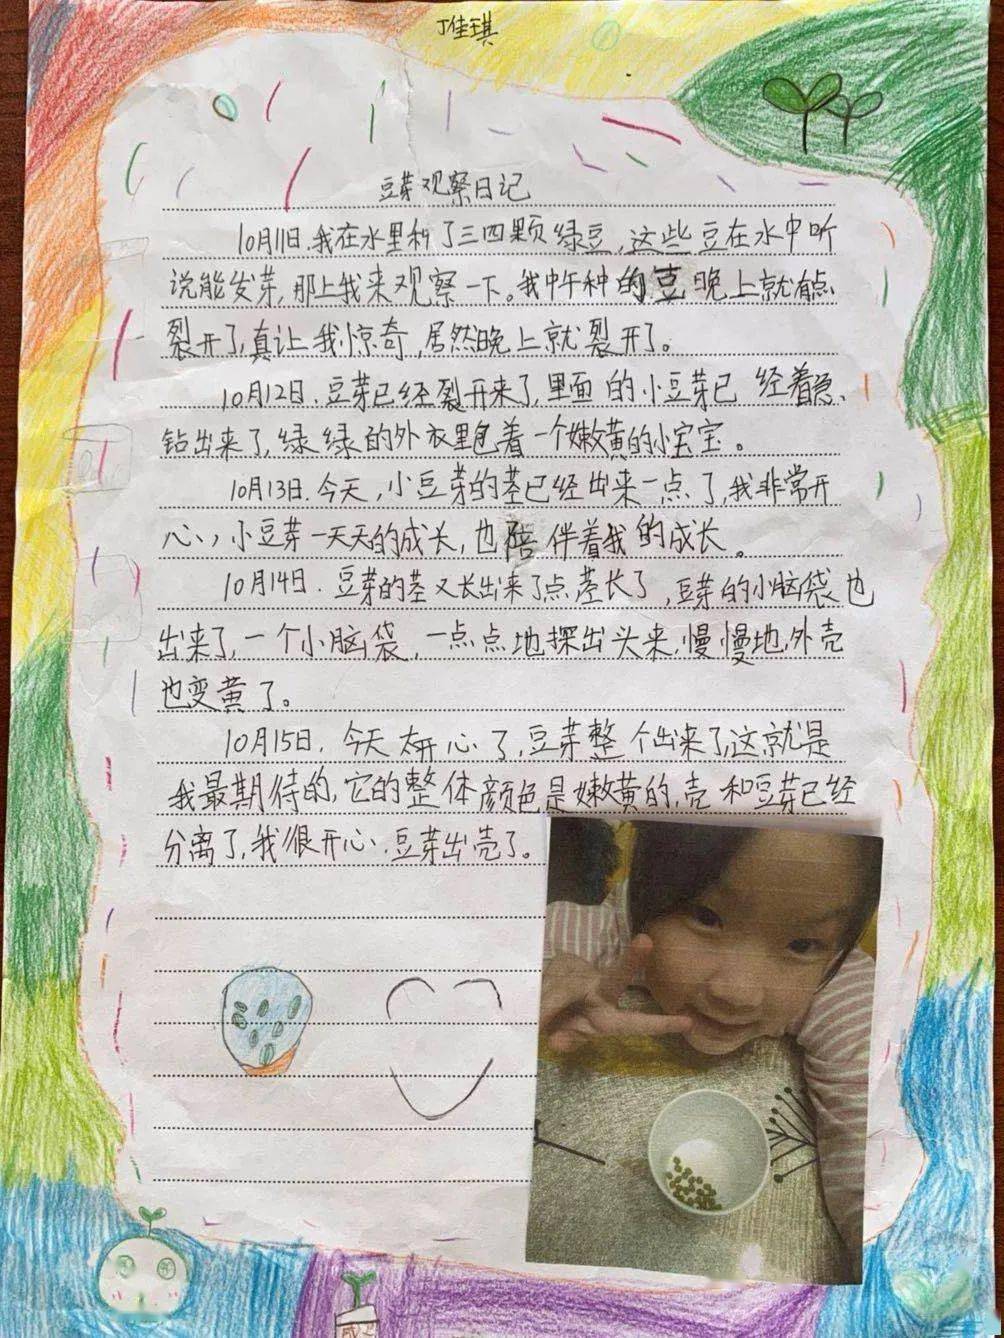 丁佳琪
豆芽观察日记
10月11日.我在水里种了三四颗绿豆,这些豆在水中听
说能发芽,那上我来观察一下。我中午种的豆晚上就有点
裂开了,真让我惊奇,居然晚上就裂开了。
10月12日.豆芽已经裂开来了,里面的小豆芽已经着急、
钻出来了,绿绿的外衣里包着一个嫩黄的小宝宝。
10月13日.今天,小豆芽的茎已经出来一点了,我非常开
心,小豆芽一天天的成长,也陪伴着我的成长。
10月14日.豆芽的茎又长出来了点,茎长了,豆芽的小脑袋也
出来了,一个小脑袋,一点点地探出头来,慢慢地,外壳
也变黄了。
10月15日,今天太开心了,豆芽整个出来了,这就是
我最期待的,它的整体颜色是嫩黄的,壳和豆芽已经
分离了,我很开心.豆芽出壳了。